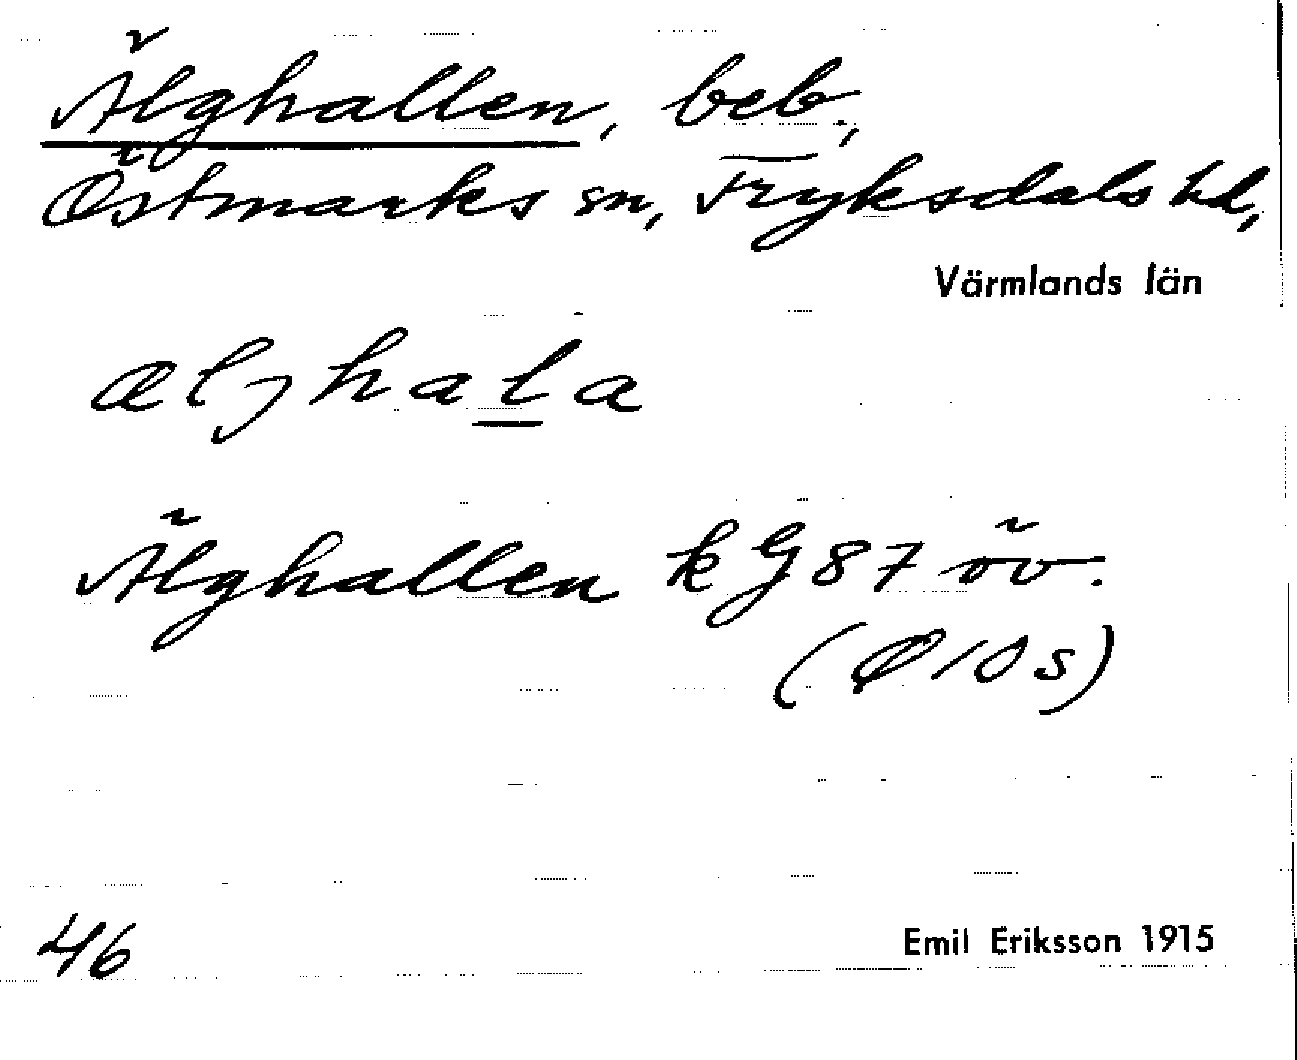 Älghallen, beb.,
Östmarks sn, Fryksdals hd,
Värmlands län
æljhala
Älghallen k G 87 öv.
(Ø 10 s)
46
Emil Eriksson 1915